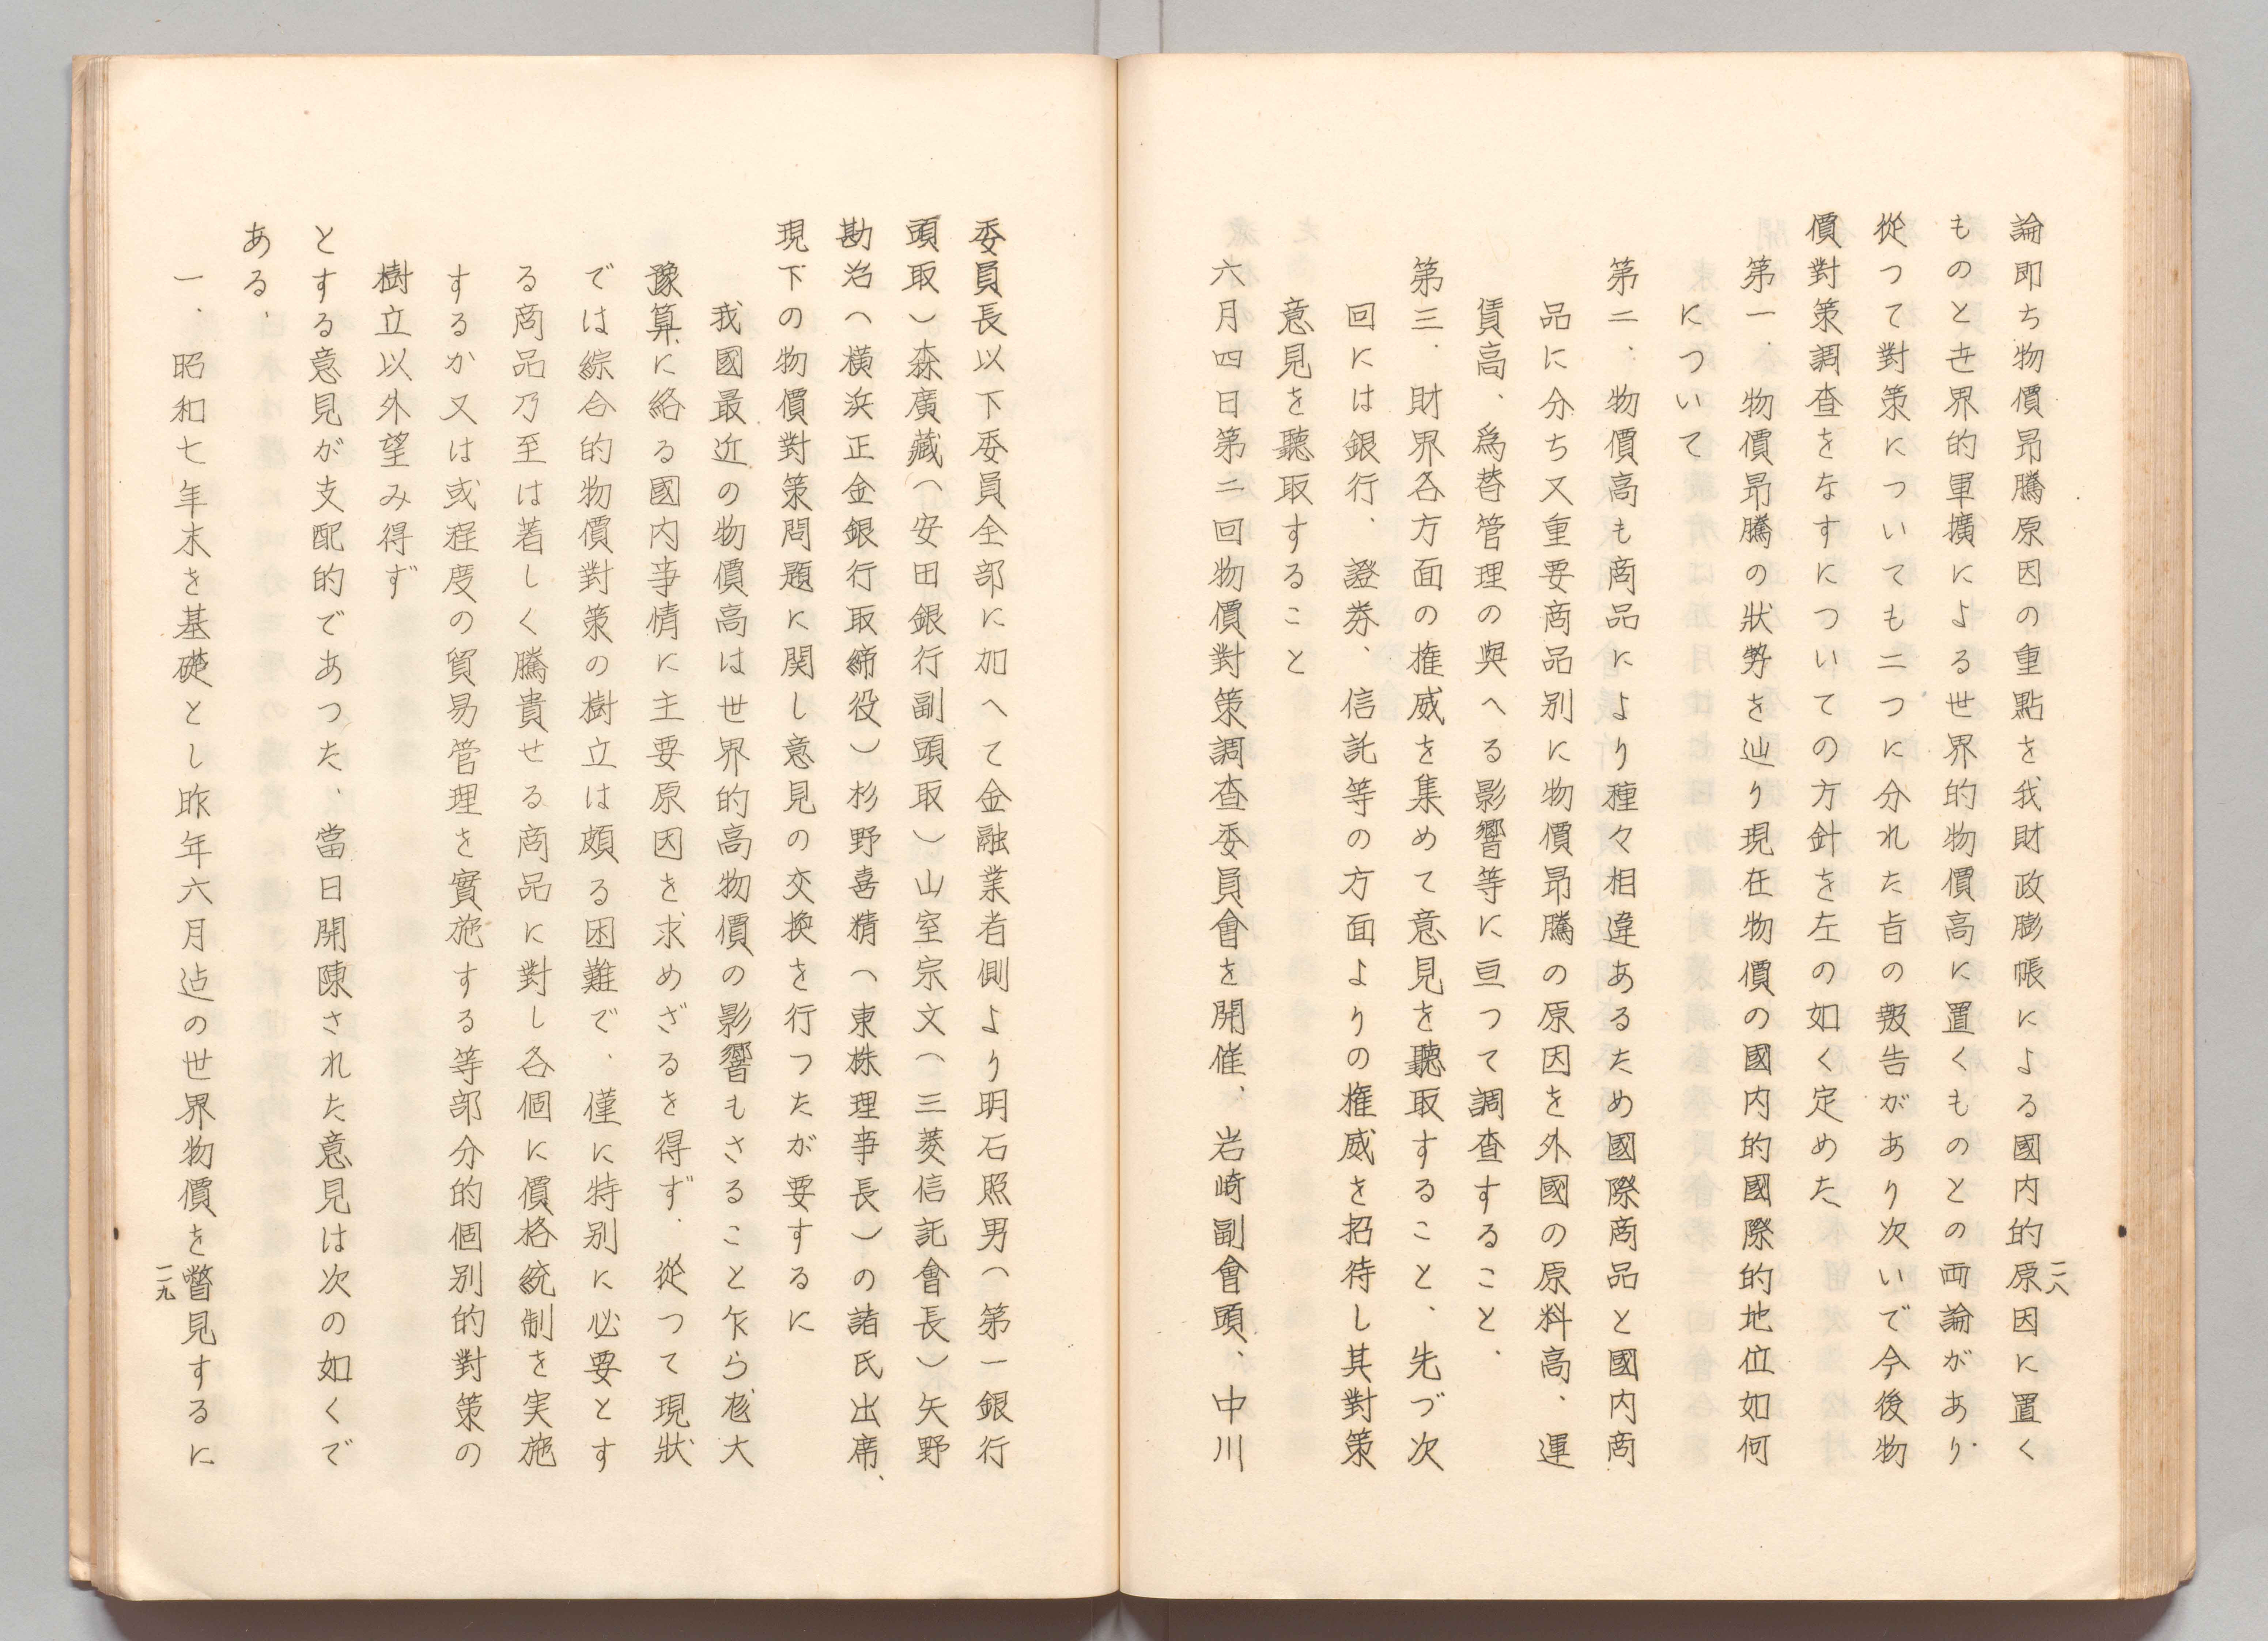 論即ち物價昂騰原因の重點を我財政膨帳による國内的原因に置く
ものと世界的軍擴による世界的物價高に置くものとの両論があり、
從つて對策についても二つに分れた旨の報告があり次いで今後物
價對策調査をなすについての方針を左の如く定めた
第一、物價昂騰の狀勢を辿り現在物價の國内的國際的地位如何
について
第二、物價高も商品により種々相違あるため國際商品と國内商
品に分ち又重要商品別に物價昂騰の原因を外國の原料高、運
賃高、為替管理の與へる影響等に亘つて調査すること、
第三、財界各方面の権威を集めて意見を聽取すること、先づ次
回には銀行、證券、信託等の方面よりの権威を招待し其對策
意見を聽取すること
六月四日第二回物價對策調査委員會を開催、岩崎副會頭、中川
二八
委員長以下委員全部に加へて金融業者側より明石照男（第一銀行
頭取）森廣藏（安田銀行副頭取）山室宗文（三菱信託會長）矢野
勘治（横浜正金銀行取締役）杉野喜精（東株理事長）の諸氏出席、
現下の物價對策問題に関し意見の交換を行つたが要するに
我國最近の物價高は世界的高物價の影響もさること乍ら尨大
豫算に絡る國内事情に主要原因を求めざるを得ず、從つて現狀
では綜合的物價對策の樹立は頗る困難で、僅に特別に必要とす
る商品乃至は著しく騰貴せる商品に對し各個に價格統制を実施
するか又は或程度の貿易管理を實施する等部分的個別的對策の
樹立以外望み得ず
とする意見が支配的であつた、當日開陳された意見は次の如くで
ある、
一、昭和七年末を基礎とし昨年六月迠の世界物價を瞥見するに
二九